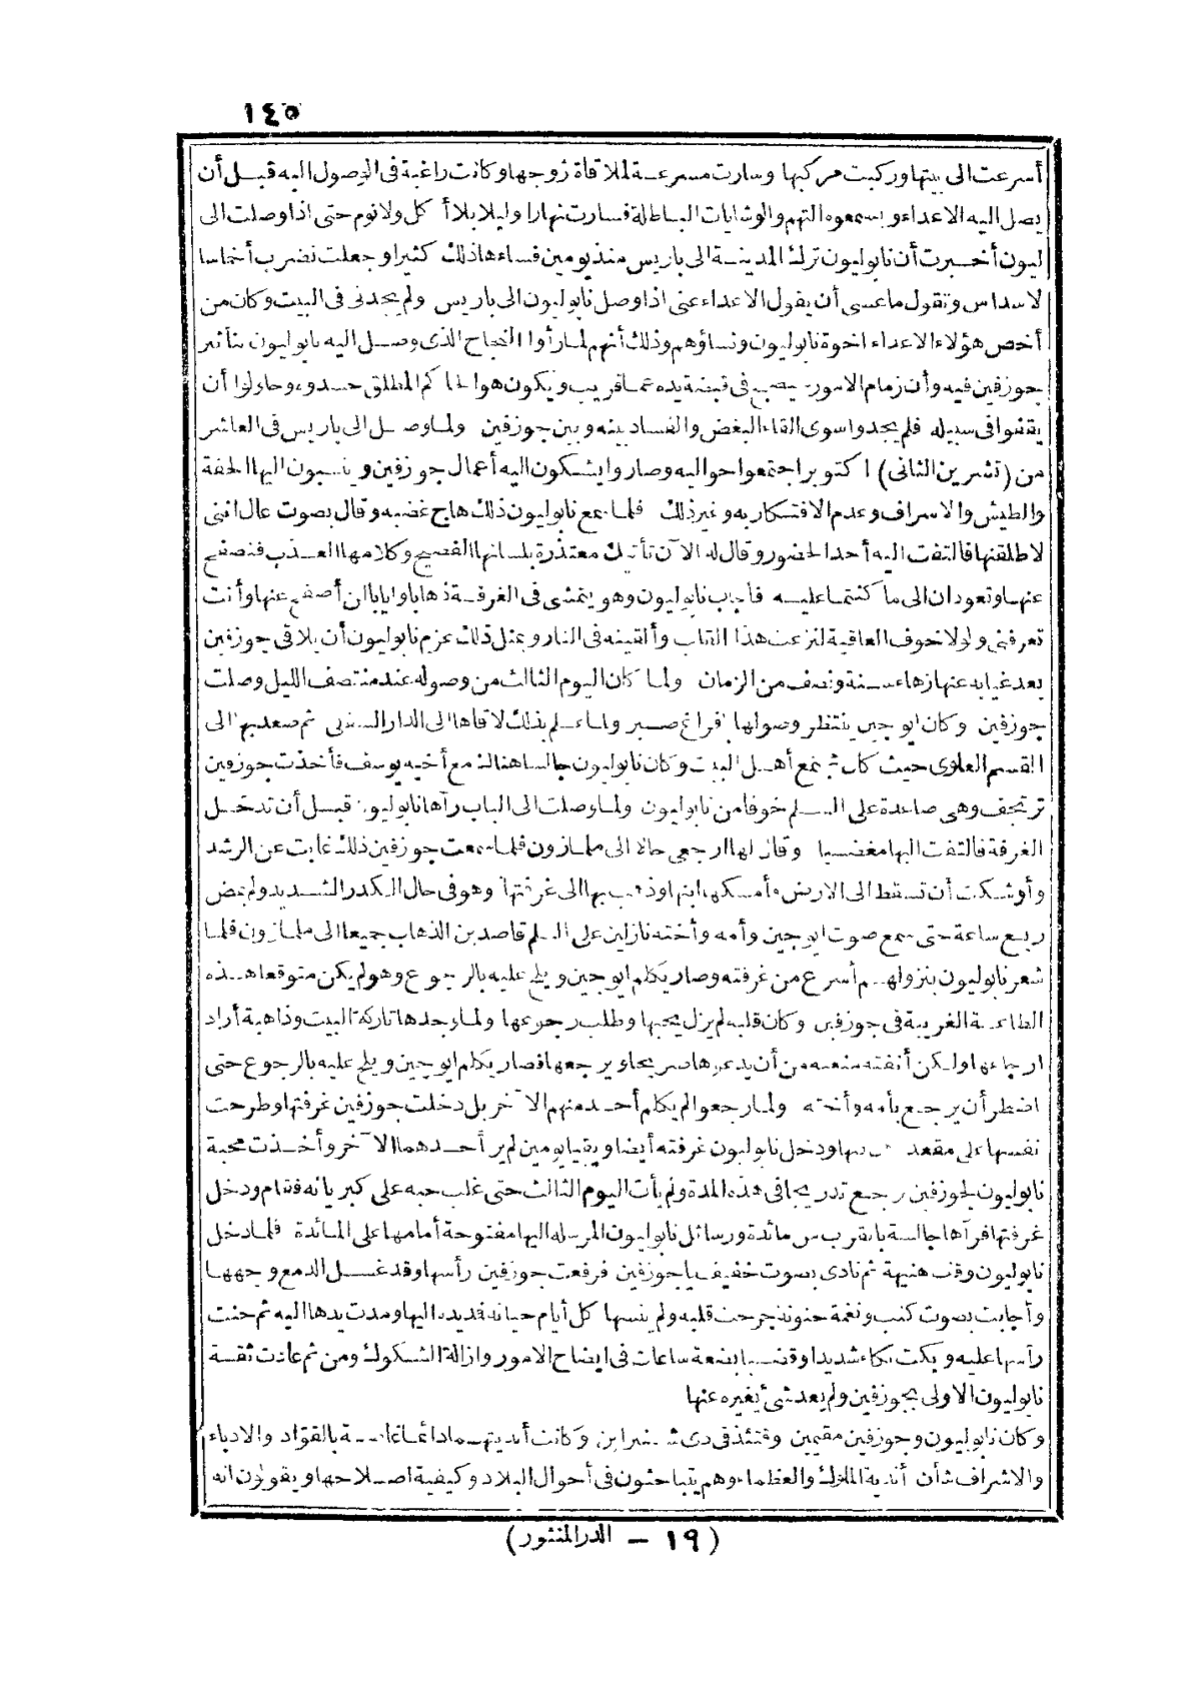 ١٤٥
أسرعت الى بيتها وركبت مركبها وسارت مسرعة لملاقاة زوجها وكانت راغبة فى الوصول اليه قبل أن
يصل اليه الاعداء ويسمعوه التهم والوشايات الباطلة فسارت نهارا وليلا بلا أكل ولا نوم حتى اذا وصلت الى
ليون أخبرت أن نابوليون ترك المدينة الى باريس منذ يومين فساءها ذلك كثيرا وجعلت تضرب أخماسا
لاسداس وتقول ما عسى أن يقول الاعداء عنى اذا وصل نابوليون الى باريس ولم يجدنى فى البيت وكان من
أخص هؤلاء الاعداء اخوة نابوليون ونساؤهم وذلك أنهم لما رأوا النجاح الذى وصل اليه نابوليون بتأثير
جوزفين فيه وأن زمام الامور سيصبح فى قبضة يده عما قريب ويكون هو الحاكم المطلق حسدوه وحاولوا أن
يقفوا فى سبيله فلم يجدوا سوى القاء البغض والفساد بينه وبين جوزفين ولما وصل الى باريس فى العاشر
من (تشرين الثانى) اكتوبر اجتمعوا حواليه وصاروا يشكون اليه أعمال جوزفين وينسبون اليها الخفة
والطيش والاسراف وعدم الافتكار به وغير ذلك فلما سمع نابوليون ذلك هاج غضبه وقال بصوت عال اننى
لاطلقنها فالتفت اليه أحد الحضور وقال له الآن تأتيك معتذرة بلسانها الفصيح وكلامها العذب فتصفح
عنها وتعودان الى ما كنتما عليه فأجاب نابوليون وهو يتمشى فى الغرفة ذهابا وايابا أن أصفح عنها وأنت
تعرفنى ولولا خوف العاقبة لنزعت هذا القلب وألقيته فى النار وبمثل ذلك عزم نابوليون أن يلاقى جوزفين
بعد غيابه عنها زهاء سنة ونصف من الزمان ولما كان اليوم الثالث من وصوله عند منتصف الليل وصلت
جوزفين وكان ايوجين ينتظر وصولها بفراغ صبر ولما علم بذلك لاقاها الى الدار السفلى ثم صعد بها الى
القسم العلوى حيث كان تجتمع أهل البيت وكان نابوليون جالسا هنالك مع أخيه يوسف فأخذت جوزفين
ترتجف وهى صاعدة على السلم خوفا من نابوليون ولما وصلت الى الباب رآها نابوليون قبل أن تدخل
الغرفة فالتفت اليها مغضبا وقال لها ارجعى حالا الى ملمازون فلما سمعت جوزفين ذلك غابت عن الرشد
وأوشكت أن تسقط الى الارض فأمسكها ابنها وذهب بها الى غرفتها وهو فى حال الكدر الشديد ولم تمض
ربع ساعة حتى سمع صوت ايوجين وأمه وأخته نازلين على السلم قاصدين الذهاب جميعا الى ملمازون فلما
شعر نابوليون بنزولهم أسرع من غرفته وصار يكلم ايوجين ويلح عليه بالرجوع وهو لم يكن متوقعا هذه
الطاعة الغريبة فى جوزفين وكان قلبه لم يزل يحبها وطلب رجوعها ولما وجدها تاركة البيت وذاهبة أراد
ارجاعها ولكن أنفته منعته من أن يدعوها صريحا ويرجعها فصار يكلم ايوجين ويلح عليه بالرجوع حتى
اضطر أن يرجع بأمه وأخته ولما رجعوا لم يكلم أحد منهم الآخر بل دخلت جوزفين غرفتها وطرحت
نفسها على مقعد بثيابها ودخل نابوليون غرفته أيضا وبقيا يومين لم ير أحدهما الآخر وأخذت محبة
نابوليون لجوزفين ترجع تدريجا فى هذه المدة ولم يأت اليوم الثالث حتى غلب حبه على كبريائه فقام ودخل
غرفتها فرآها جالسة بالقرب من مائدة ورسائل نابوليون المرسلة اليها مفتوحة أمامها على المائدة فلما دخل
نابوليون وقف هنيهة ثم نادى بصوت خفيف يا جوزفين فرفعت جوزفين رأسها وقد غسل الدمع وجهها
وأجابت بصوت كئيب ونغمة حنونة جرحت قلبه ولم ينسها كل أيام حياته فمد يده اليها ومدت يدها اليه ثم حنت
رأسها عليه وبكت بكاء شديدا وقضيا بضعة ساعات فى ايضاح الامور وازالة الشكوك ومن ثم عادت ثقة
نابوليون الاولى بجوزفين ولم يعد شئ يغيره عنها
وكان نابوليون وجوزفين مقيمين وقتئذ فى دى شنترابن وكانت أنديتهما دائما غاصة بالقواد والادباء
والاشراف شأن أندية الملوك والعظماء وهم يتباحثون فى أحوال البلاد وكيفية اصلاحها ويقولون انه
(١٩ – الدر المنثور)